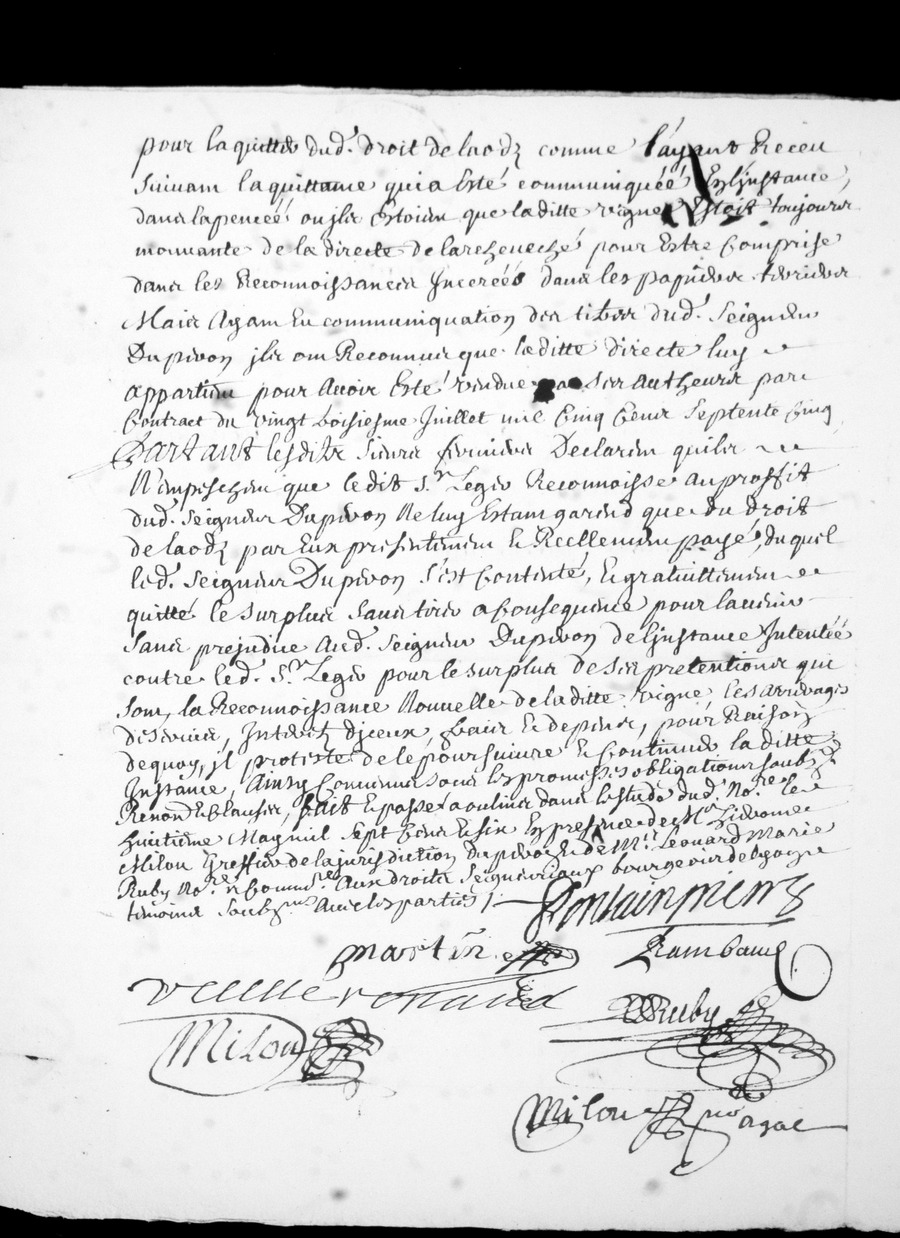 pour la quitter dud. droit de laodz comme layant Receu
suivam la quittance quia Esté communiquéé En Linstance,
dans lapenceé ou jls Estoien que laditte vigne Estoit toujours
mouuante de la directe de larcheueché pour Estre Comprise
dans les Reconnoissances Jncereés dans les papiers terriers
Mais Ayam Eu communiquation des titres dud. Seigneur
Dupivon jls om Reconnu que laditte directe luy
appartien pour Avoir Esté vendue par ses autheurs par
Contract du vingt troisiesme Juillet mil Cinq Cens Septente Cinq
Partant lesdits Sieurs fermiers Declaren quils
N'impeschen que ledit Sr. Legier Reconnoisse au proffit
dud. Seigneur Dupivon Neluy Estam garend que du droit
de laodz par Eux presentemen et Reellemen payé, duquel
led. Seigneur Dupivon s'est Contenté, et gratuittemen
quitté le surplus sans tirer a Consequence pour lavenir
sans prejudice Aud. Seigneur Dupivon de Ljnstance Jntenteé
contre led. Sr. Legier pour le surplus de ses pretentions qui
som, la Reconnoissance Nouvelle de laditte vigne, les arrerages
de servis, Jnterets djceux, frais et depens, pour Raison
dequoy, jl proteste de le poursuivre et Continuer laditte
Jnstance, Ainsy Convenu sous les promesses obligations soubz.
Renon. et clauses, fait et passé a oulins dans lestude dud. Nore. le
huitieme May mil Sept Cens et six En presence de Me.
Milou Greffier de la jurisdiction Dupivon et de Mr. Leonard Marie
Ruby Nore. et Commre. Aux droits Seigneuriaux bourgeois de Lyon
temoins Soubznes Avec les parties /.
Martin
Rambaud
Ruby
Milou
Milou